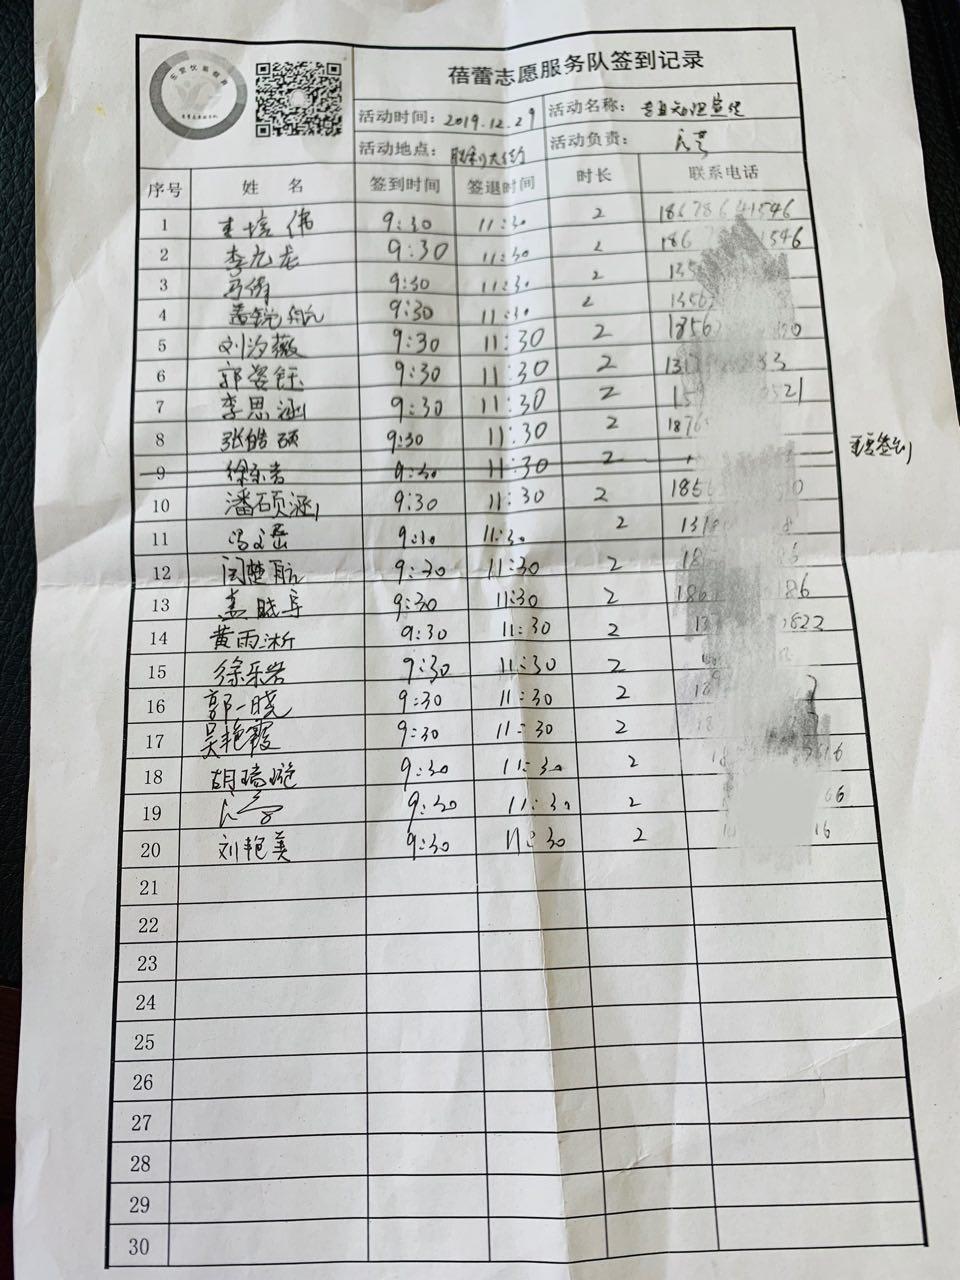 蓓蕾志愿服务队签到记录
活动时间：2019.12.29 活动名称：
活动地点：胜利大街 活动负责：
序号 姓 名 签到时间 签退时间 时长 联系电话
1 李培伟 9:30 11:30 2 18678641546
2 李允龙 9:30 11:30 2 186 1546
3 9:30 11:30 2 135
4 孟锐航 9:30 11:30 2 1356
5 刘汐薇 9:30 11:30 2 1856
6 郭姿钰 9:30 11:30 2 137 3
7 李思涵 9:30 11:30 2 15 521
8 张皓硕 9:30 11:30 2 1876
9 徐乐岩 9:30 11:30 2 重复签到
10 潘硕涵 9:30 11:30 2 1856 0
11 9:30 11:30 2 131 8
12 闵楚航 9:30 11:30 2 18 6
13 孟晓宇 9:30 11:30 2 186 186
14 黄雨淅 9:30 11:30 2 1822
15 徐乐岩 9:30 11:30 2
16 郭一晓 9:30 11:30 2 18
17 吴艳霞 9:30 11:30 2 18
18 胡瑞璇 9:30 11:30 2 616
19 9:30 11:30 2 66
20 刘艳美 9:30 11:30 2 16
21
22
23
24
25
26
27
28
29
30